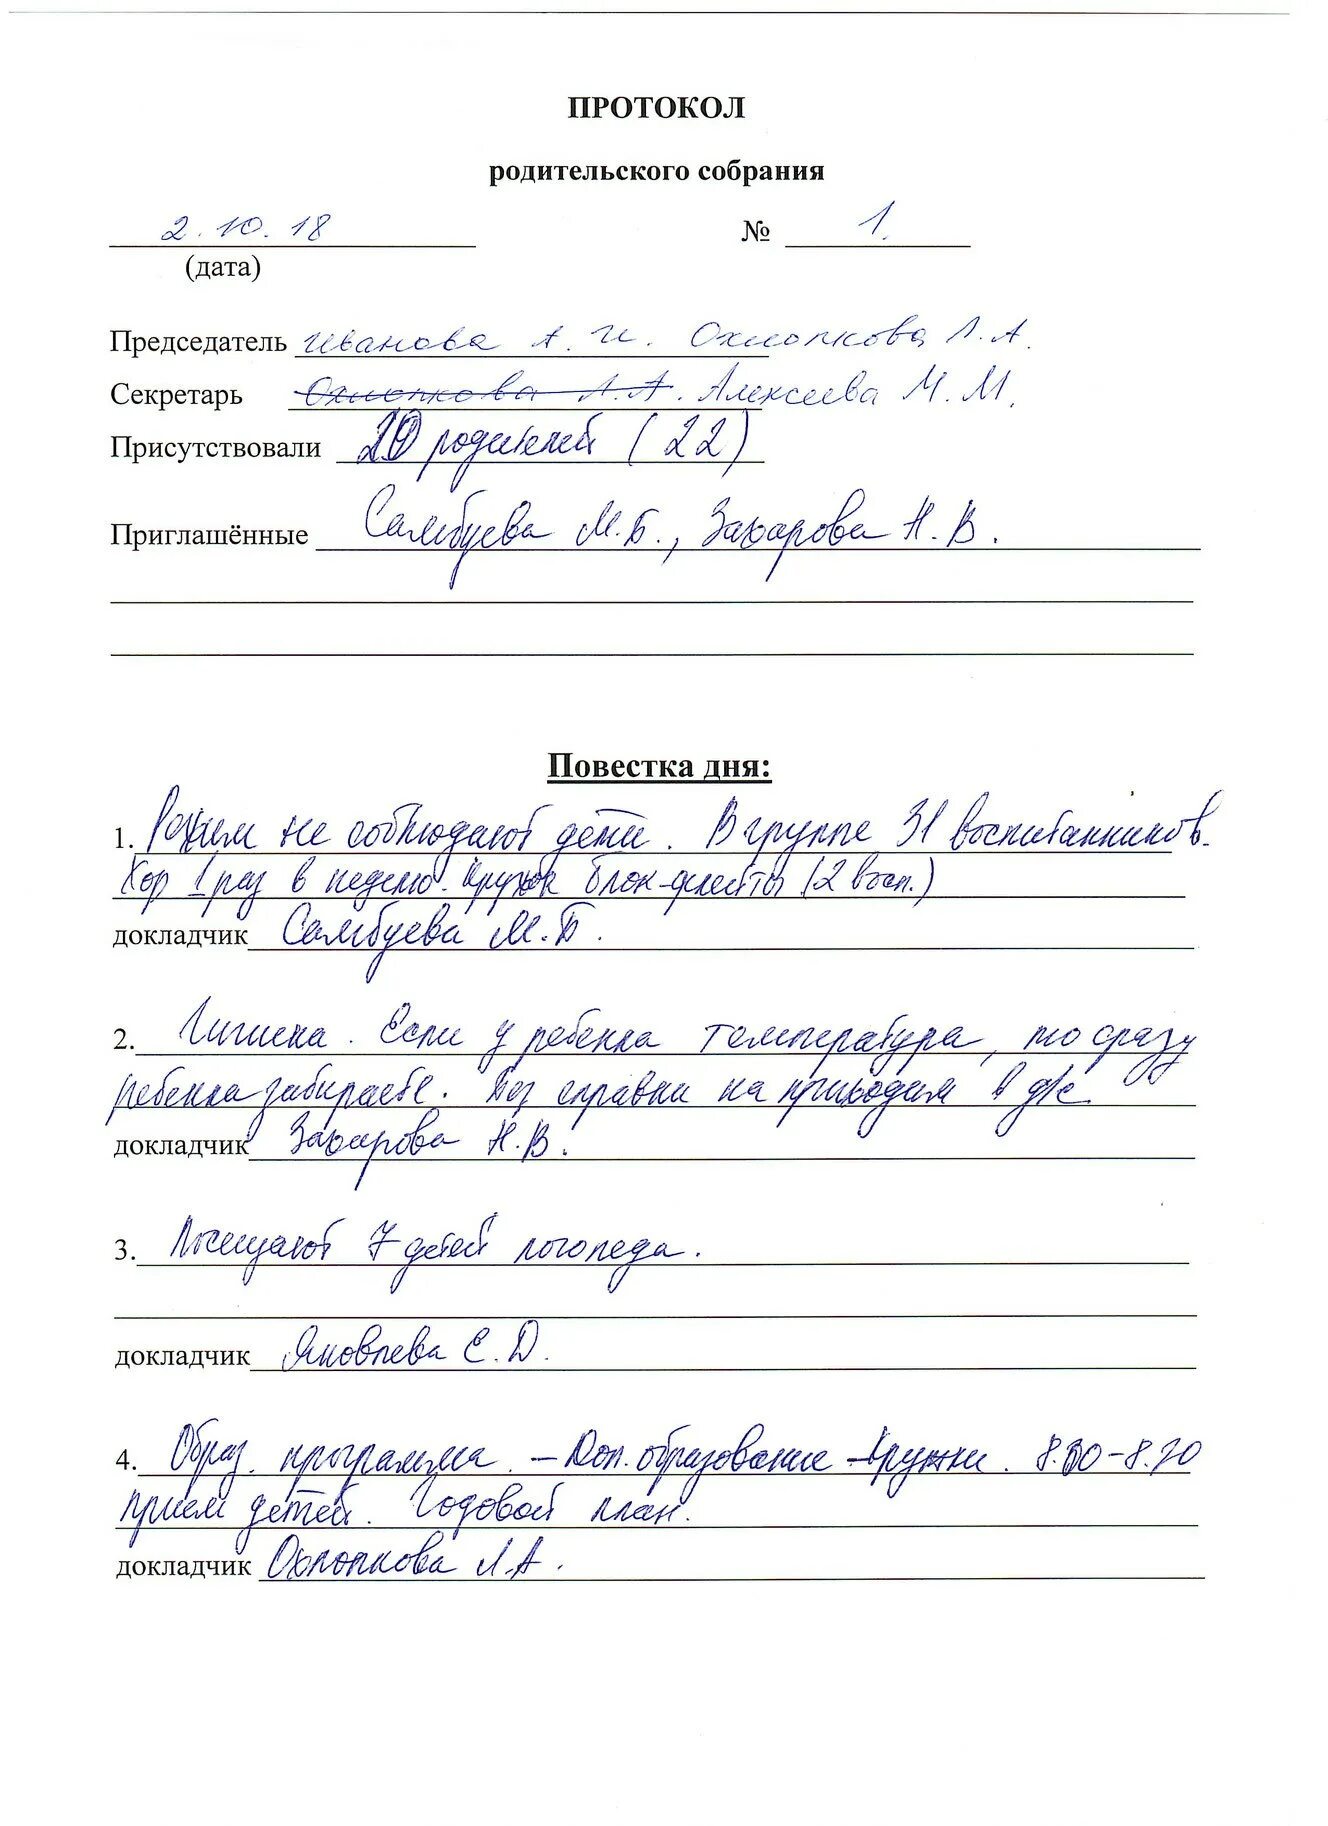 ПРОТОКОЛ
родительского собрания
2.10.18 № 1.
(дата)
Председатель Иванова А. И. Охлопкова Л.А.
Секретарь Охлопкова Л.А. Алексеева М.М.
Присутствовали 20 родителей (22)
Приглашённые Самбуева М.Б., Захарова Н.В.
Повестка дня:
1. Режим не соблюдают дети. В группе 31 воспитанников.
Хор 1 раз в неделю. Кружок блок-флейты (2 восп.)
докладчик Самбуева М.Б.
2. Гигиена. Если у ребенка температура, то сразу
ребенка забираете. Без справки на приходим в д/с
докладчик Захарова Н.В.
3. Посещают 7 детей логопеда.
докладчик Яковлева Е.Д.
4. Образ. программа. – Доп. образование – кружки. 8.00-8.30
прием детей. Годовой план.
докладчик Охлопкова Л.А.